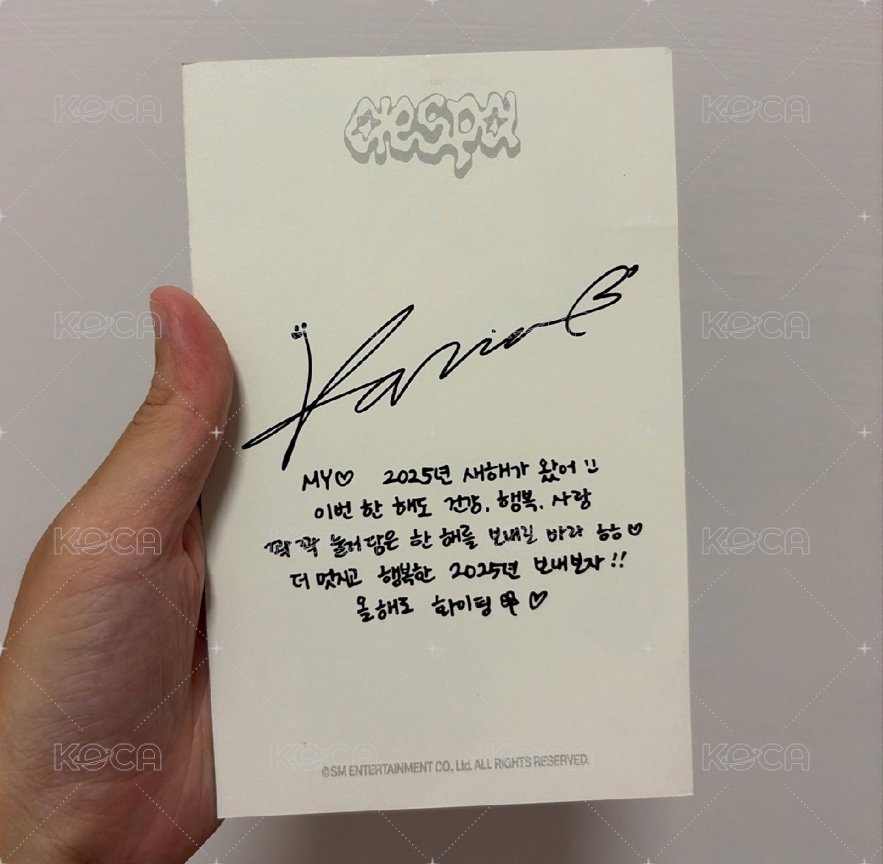 aespa
Karina
MY♡ 2025년 새해가 왔어 !!
이번 한 해도 건강, 행복, 사랑
꽉 꽉 눌러 담은 한 해를 보내길 바라 ㅎㅎ♡
더 멋지고 행복한 2025년 보내보자 !!
올해도 화이팅 🍀 ♡
©SM ENTERTAINMENT CO., Ltd. ALL RIGHTS RESERVED.
KOCA KOCA
KOCA KOCA
KOCA KOCA
KOCA KOCA KOCA